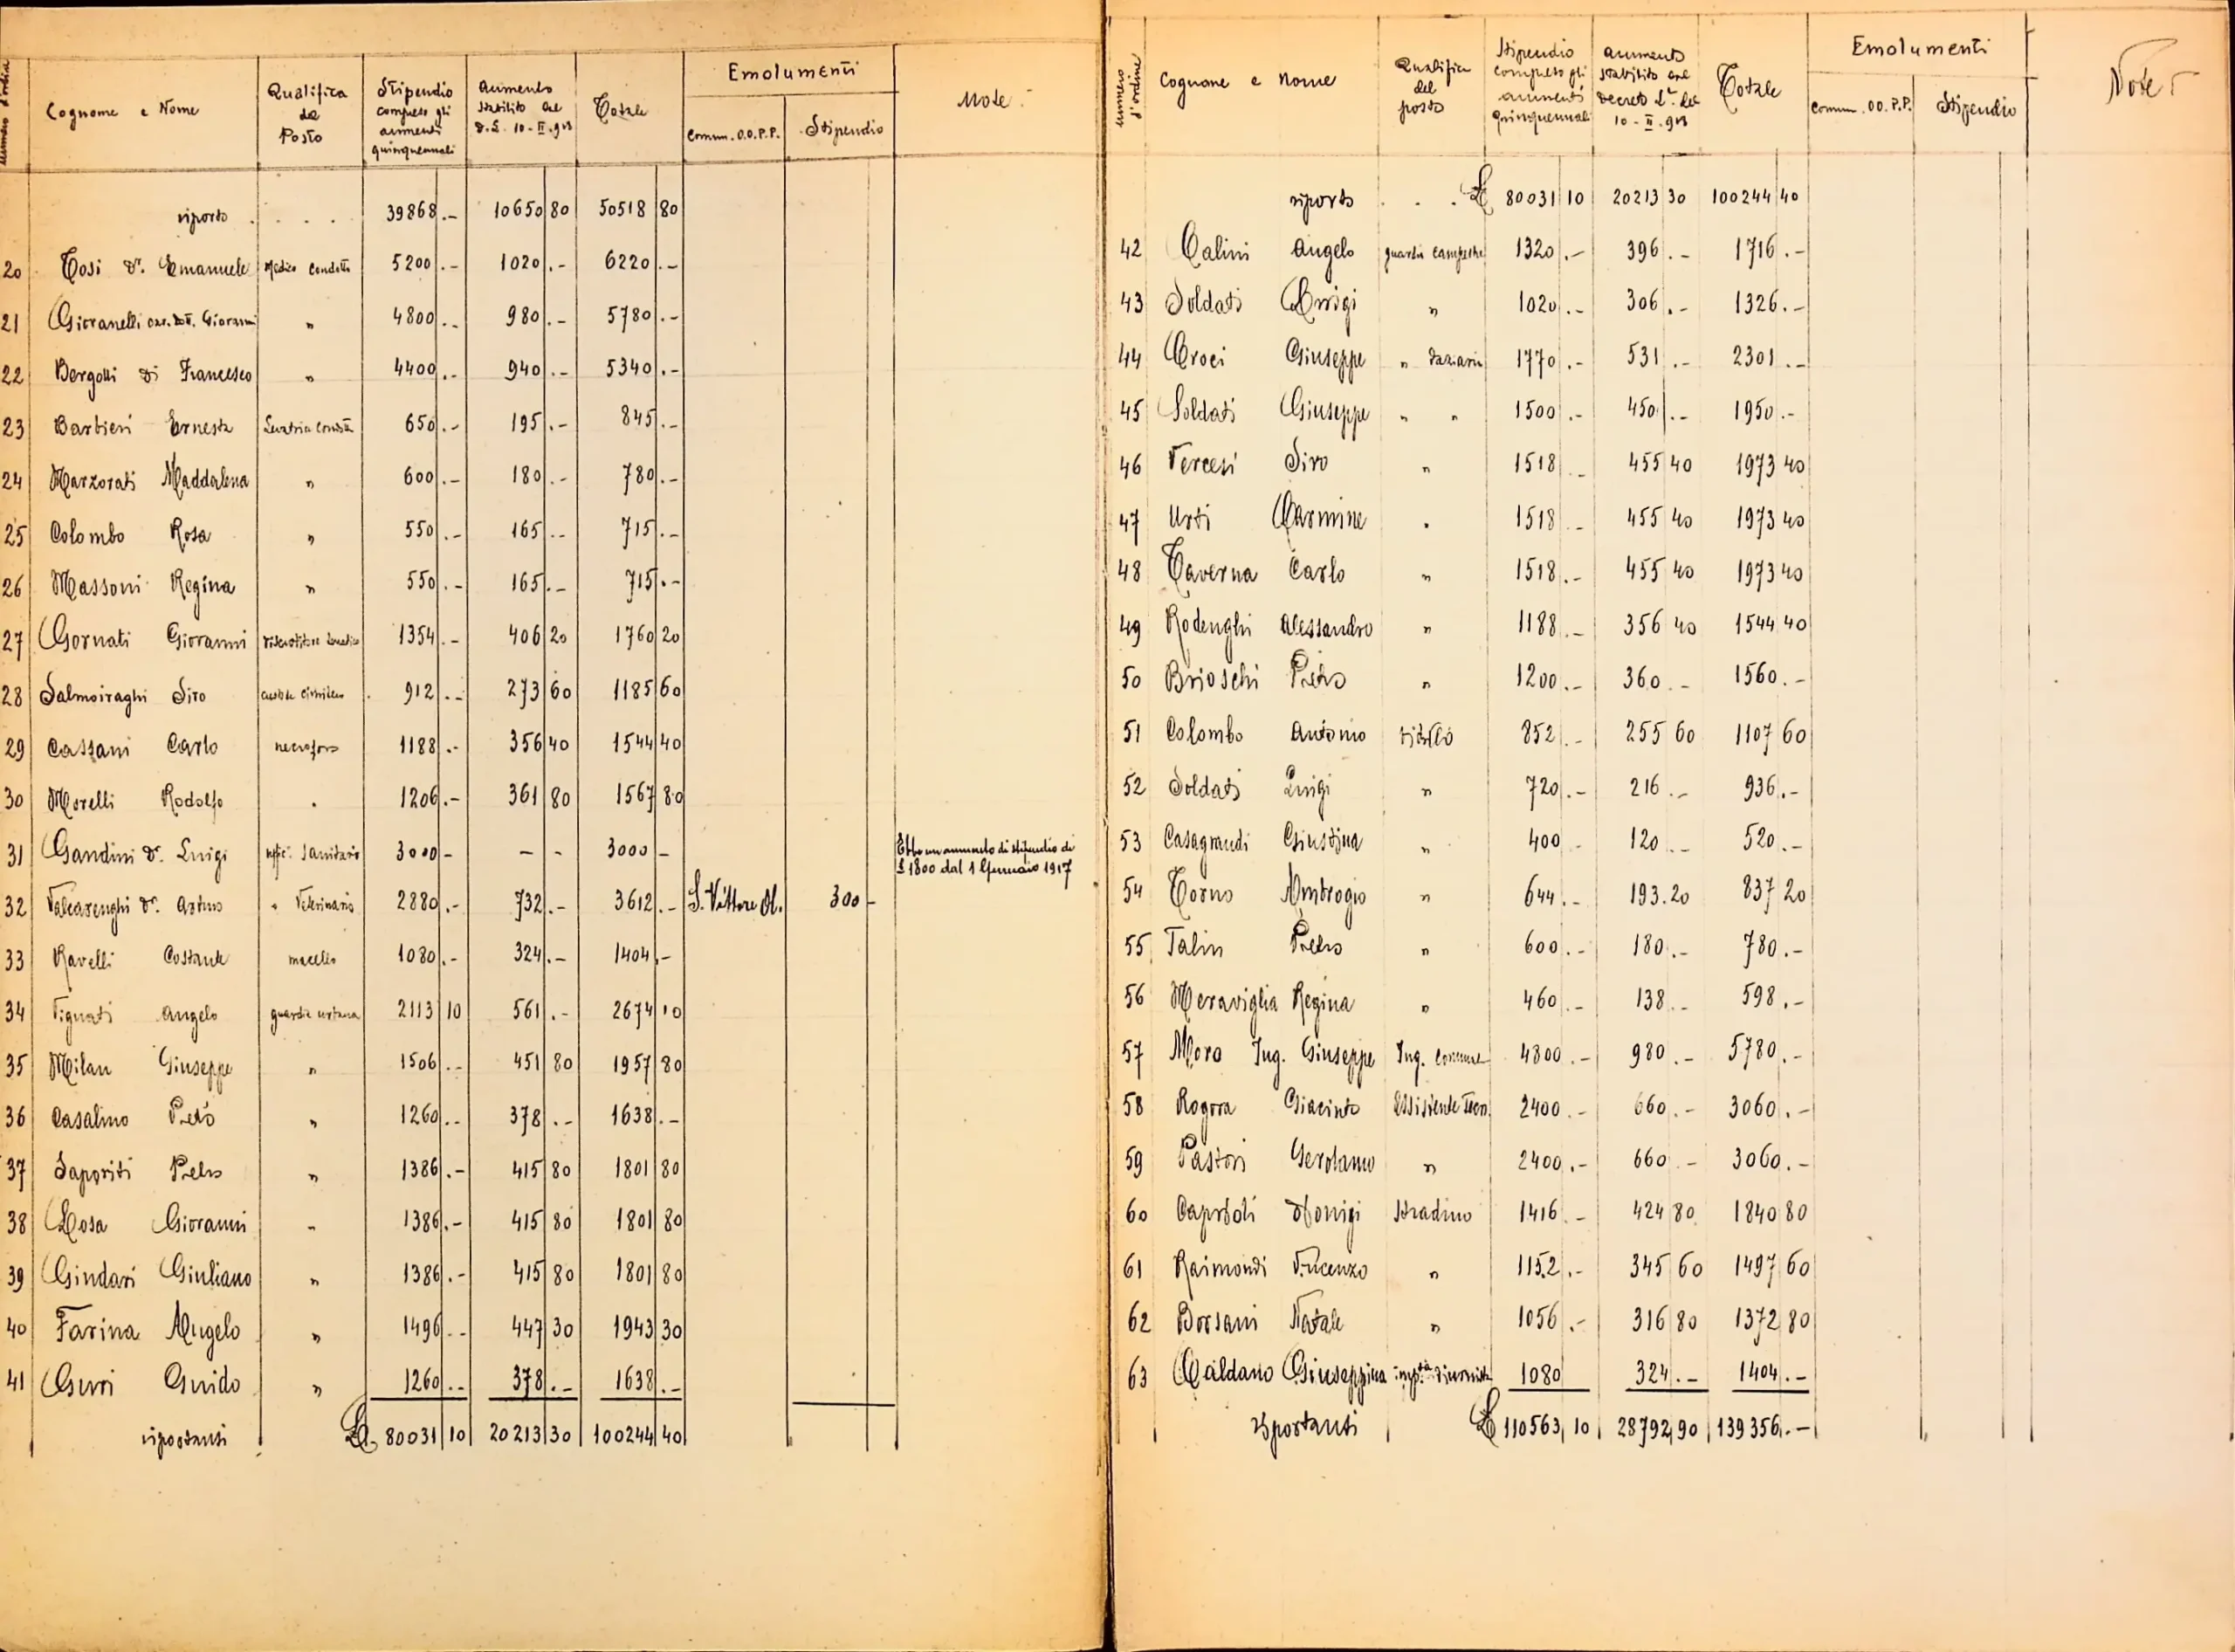 numero d'ordine Cognome e Nome Qualifica del Posto Stipendio compreso gli aumenti quinquennali Aumento stabilito dal D.L. 10-II-918 Totale Emolumenti Comun. O.O.P.P. Stipendio Note
riporto . . . . 39868 .- 10650 80 50518 80
20 Tosi Dr. Emanuele Medico Condotto 5200 .- 1020 .- 6220 .-
21 Giovanelli cav. Dr. Giovanni " 4800 .- 980 .- 5780 .-
22 Bergotti di Francesco " 4400 .- 940 .- 5340 .-
23 Barbieri Ernesta Levatrice Condta 650 .- 195 .- 845 .-
24 Marzorati Maddalena " 600 .- 180 .- 780 .-
25 Colombo Rosa " 550 .- 165 .- 715 .-
26 Massoni Regina " 550 .- 165 .- 715 .-
27 Gornati Giovanni 1354 .- 406 20 1760 20
28 Salmoiraghi Siro custode Cimitero 912 .- 273 60 1185 60
29 Cassani Carlo necroforo 1188 .- 356 40 1544 40
30 Morelli Rodolfo " 1206 .- 361 80 1567 80
31 Gandini Dr. Luigi uffic. Sanitario 3000 - - - 3000 - Ebbe un aumento di stipendio di
£ 1800 dal 1 Gennaio 1917
32 Valcarenghi Dr. Arturo " Veterinario 2880 .- 732 .- 3612 .- S. Vittore Ol. 300 -
33 Ravelli Costante macello 1080 .- 324 .- 1404 .-
34 Vignati Angelo guardia urbana 2113 10 561 .- 2674 10
35 Milan Giuseppe " 1506 .- 451 80 1957 80
36 Casalino Pietro " 1260 .- 378 .- 1638 .-
37 Saporiti Pietro " 1386 .- 415 80 1801 80
38 Rosa Giovanni " 1386 .- 415 80 1801 80
39 Gindari Giuliano " 1386 .- 415 80 1801 80
40 Farina Angelo " 1496 .- 447 30 1943 30
41 Guido " 1260 .- 378 .- 1638 .-
riportansi £. 80031 10 20213 30 100244 40
numero d'ordine Cognome e Nome Qualifica del posto Stipendio compreso gli aumenti quinquennali Aumento stabilito dal Decreto L. del 10-II-918 Totale Emolumenti Comun. OO.P.P. Stipendio Note
riporto . . . £ 80031 10 20213 30 100244 40
42 Calini Angelo guardia campestre 1320 .- 396 .- 1716 .-
43 Soldati Luigi " 1020 .- 306 .- 1326 .-
44 Croci Giuseppe " daziaria 1770 .- 531 .- 2301 .-
45 Soldati Giuseppe " " 1500 .- 450 .- 1950 .-
46 Vercesi Siro " 1518 .- 455 40 1973 40
47 Urti Carmine " 1518 .- 455 40 1973 40
48 Taverna Carlo " 1518 .- 455 40 1973 40
49 Rodenghi Alessandro " 1188 .- 356 40 1544 40
50 Brioschi Pietro " 1200 .- 360 .- 1560 .-
51 Colombo Antonio bidello 852 .- 255 60 1107 60
52 Soldati Luigi " 720 .- 216 .- 936 .-
53 Casagrandi Giustina " 400 - 120 .- 520 .-
54 Torno Ambrogio " 644 .- 193.20 837 20
55 Talin Pietro " 600 .- 180 .- 780 .-
56 Meraviglia Regina " 460 .- 138 .- 598 .-
57 Moro Ing. Giuseppe Ing. Comune 4800 .- 980 .- 5780 .-
58 Rogora Giacinto Assistente Tecn. 2400 .- 660 .- 3060 .-
59 Pastori Gerolamo " 2400 .- 660 - 3060 .-
60 Caprioli Stradino 1416 .- 424 80 1840 80
61 Raimondi Vincenzo " 1152 .- 345 60 1497 60
62 Borsani Natale " 1056 .- 316 80 1372 80
63 Caldano Giuseppina imp.ta diurnista 1080 324 .- 1404 .-
riportansi £ 110563 10 28792 90 139356 .-